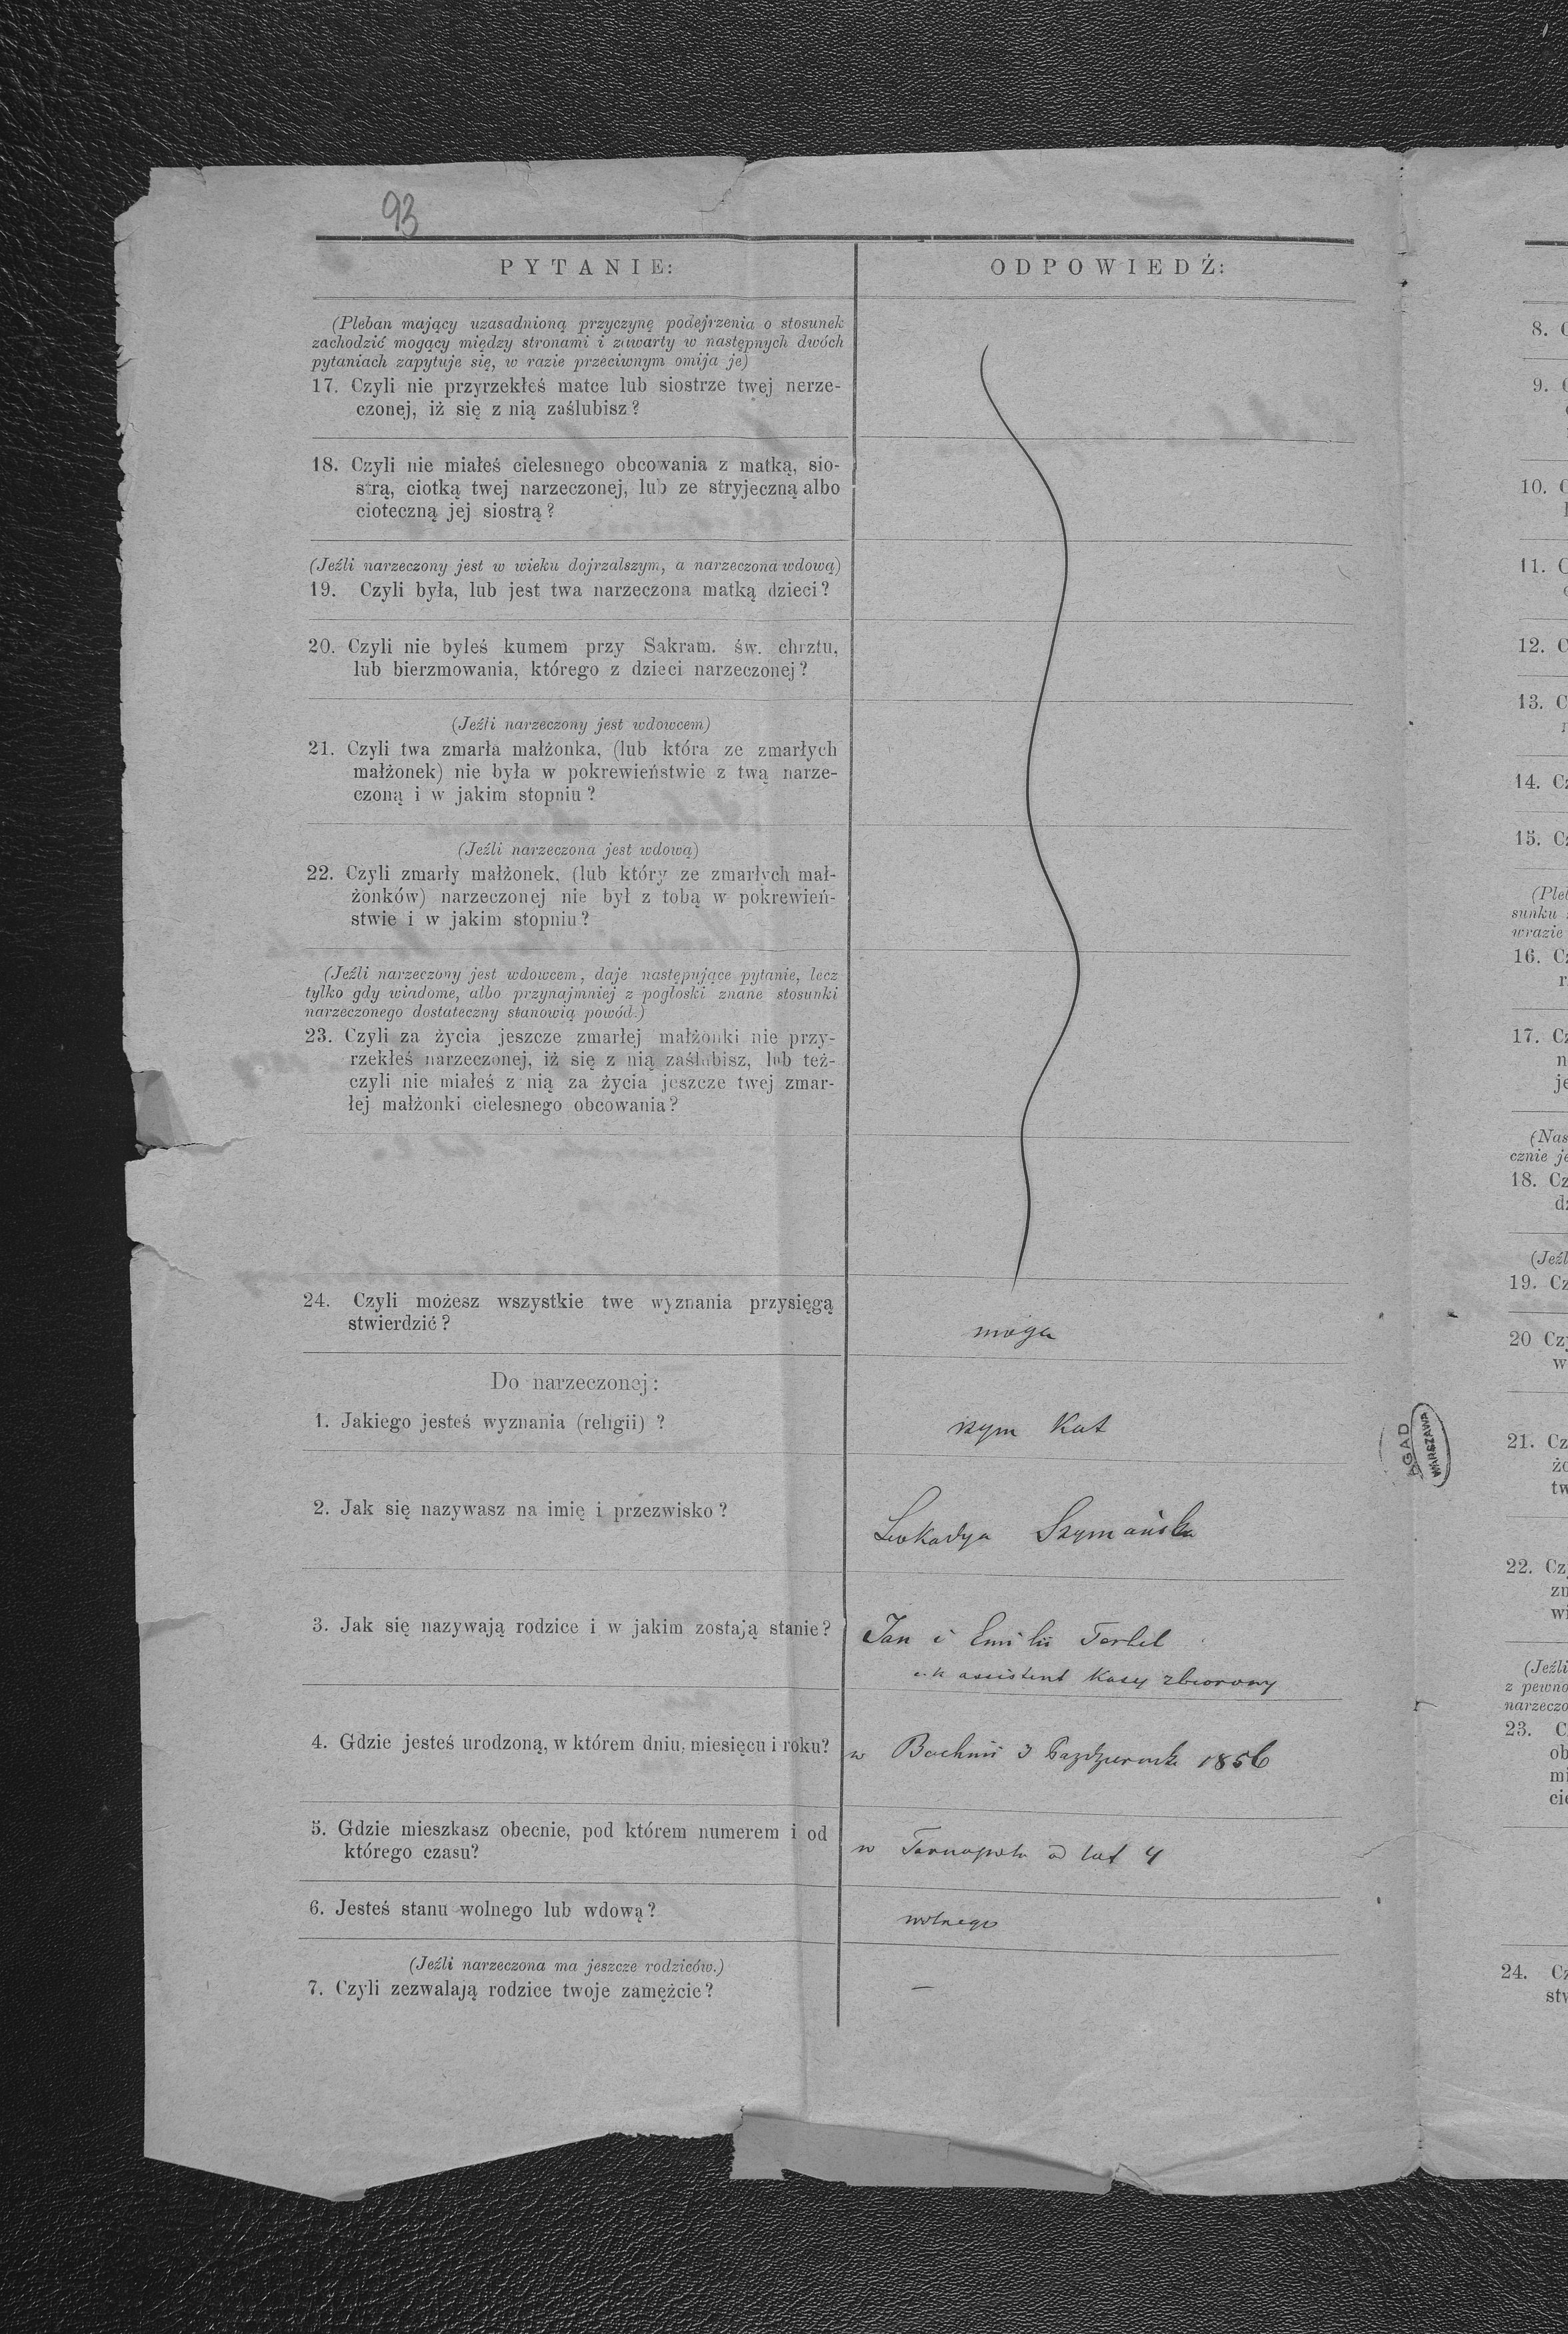 93
PYTANIE:
ODPOWIEDŹ:
(Pleban mający uzasadnioną przyczynę podejrzenia o stosunek
zachodzić mogący między stronami i zawarty w następnych dwóch
pytaniach zapytuje się, w razie przeciwnym omija je)
17. Czyli nie przyrzekłeś matce lub siostrze twej nerze-
czonej, iż się z nią zaślubisz?
18. Czyli nie miałeś cielesnego obcowania z matką, sio-
strą, ciotką twej narzeczonej, lub ze stryjeczną albo
cioteczną jej siostrą?
(Jeźli narzeczony jest w wieku dojrzalszym, a narzeczona wdową)
19. Czyli była, lub jest twa narzeczona matką dzieci?
20. Czyli nie byłeś kumem przy Sakram. św. chrztu,
lub bierzmowania, którego z dzieci narzeczonej?
(Jeźli narzeczony jest wdowcem)
21. Czyli twa zmarła małżonka, (lub która ze zmarłych
małżonek) nie była w pokrewieństwie z twą narze-
czoną i w jakim stopniu?
(Jeźli narzeczona jest wdową)
22. Czyli zmarły małżonek, (lub który ze zmarłych mał-
żonków) narzeczonej nie był z tobą w pokrewień-
stwie i w jakim stopniu?
(Jeźli narzeczony jest wdowcem, daje następujące pytanie, lecz
tylko gdy wiadome, albo przynajmniej z pogłoski znane stosunki
narzeczonego dostateczny stanowią powód.)
23. Czyli za życia jeszcze zmarłej małżonki nie przy-
rzekłeś narzeczonej, iż się z nią zaślubisz, lub też
czyli nie miałeś z nią za życia jeszcze twej zmar-
łej małżonki cielesnego obcowania?
24. Czyli możesz wszystkie twe wyznania przysięgą
stwierdzić?
mogę
Do narzeczonej:
1. Jakiego jesteś wyznania (religii) ?
rzym Kat
2. Jak się nazywasz na imię i przezwisko?
Leokadya Szymańska
3. Jak się nazywają rodzice i w jakim zostają stanie?
Jan i Emilii
c.k assistent Kasy zbiorowy
4. Gdzie jesteś urodzoną, w którem dniu, miesięcu i roku?
w Bochnii 3 Października 1856
5. Gdzie mieszkasz obecnie, pod którem numerem i od
którego czasu?
w Tarnopolu od lat 4
6. Jesteś stanu wolnego lub wdową?
wolnego
(Jeźli narzeczona ma jeszcze rodziców.)
7. Czyli zezwalają rodzice twoje zamężcie?
—
AGAD
WARSZAWA
8.
9.
10.
11.
12.
13.
14.
15.
16.
17.
18.
19.
20
21.
22.
23.
24.